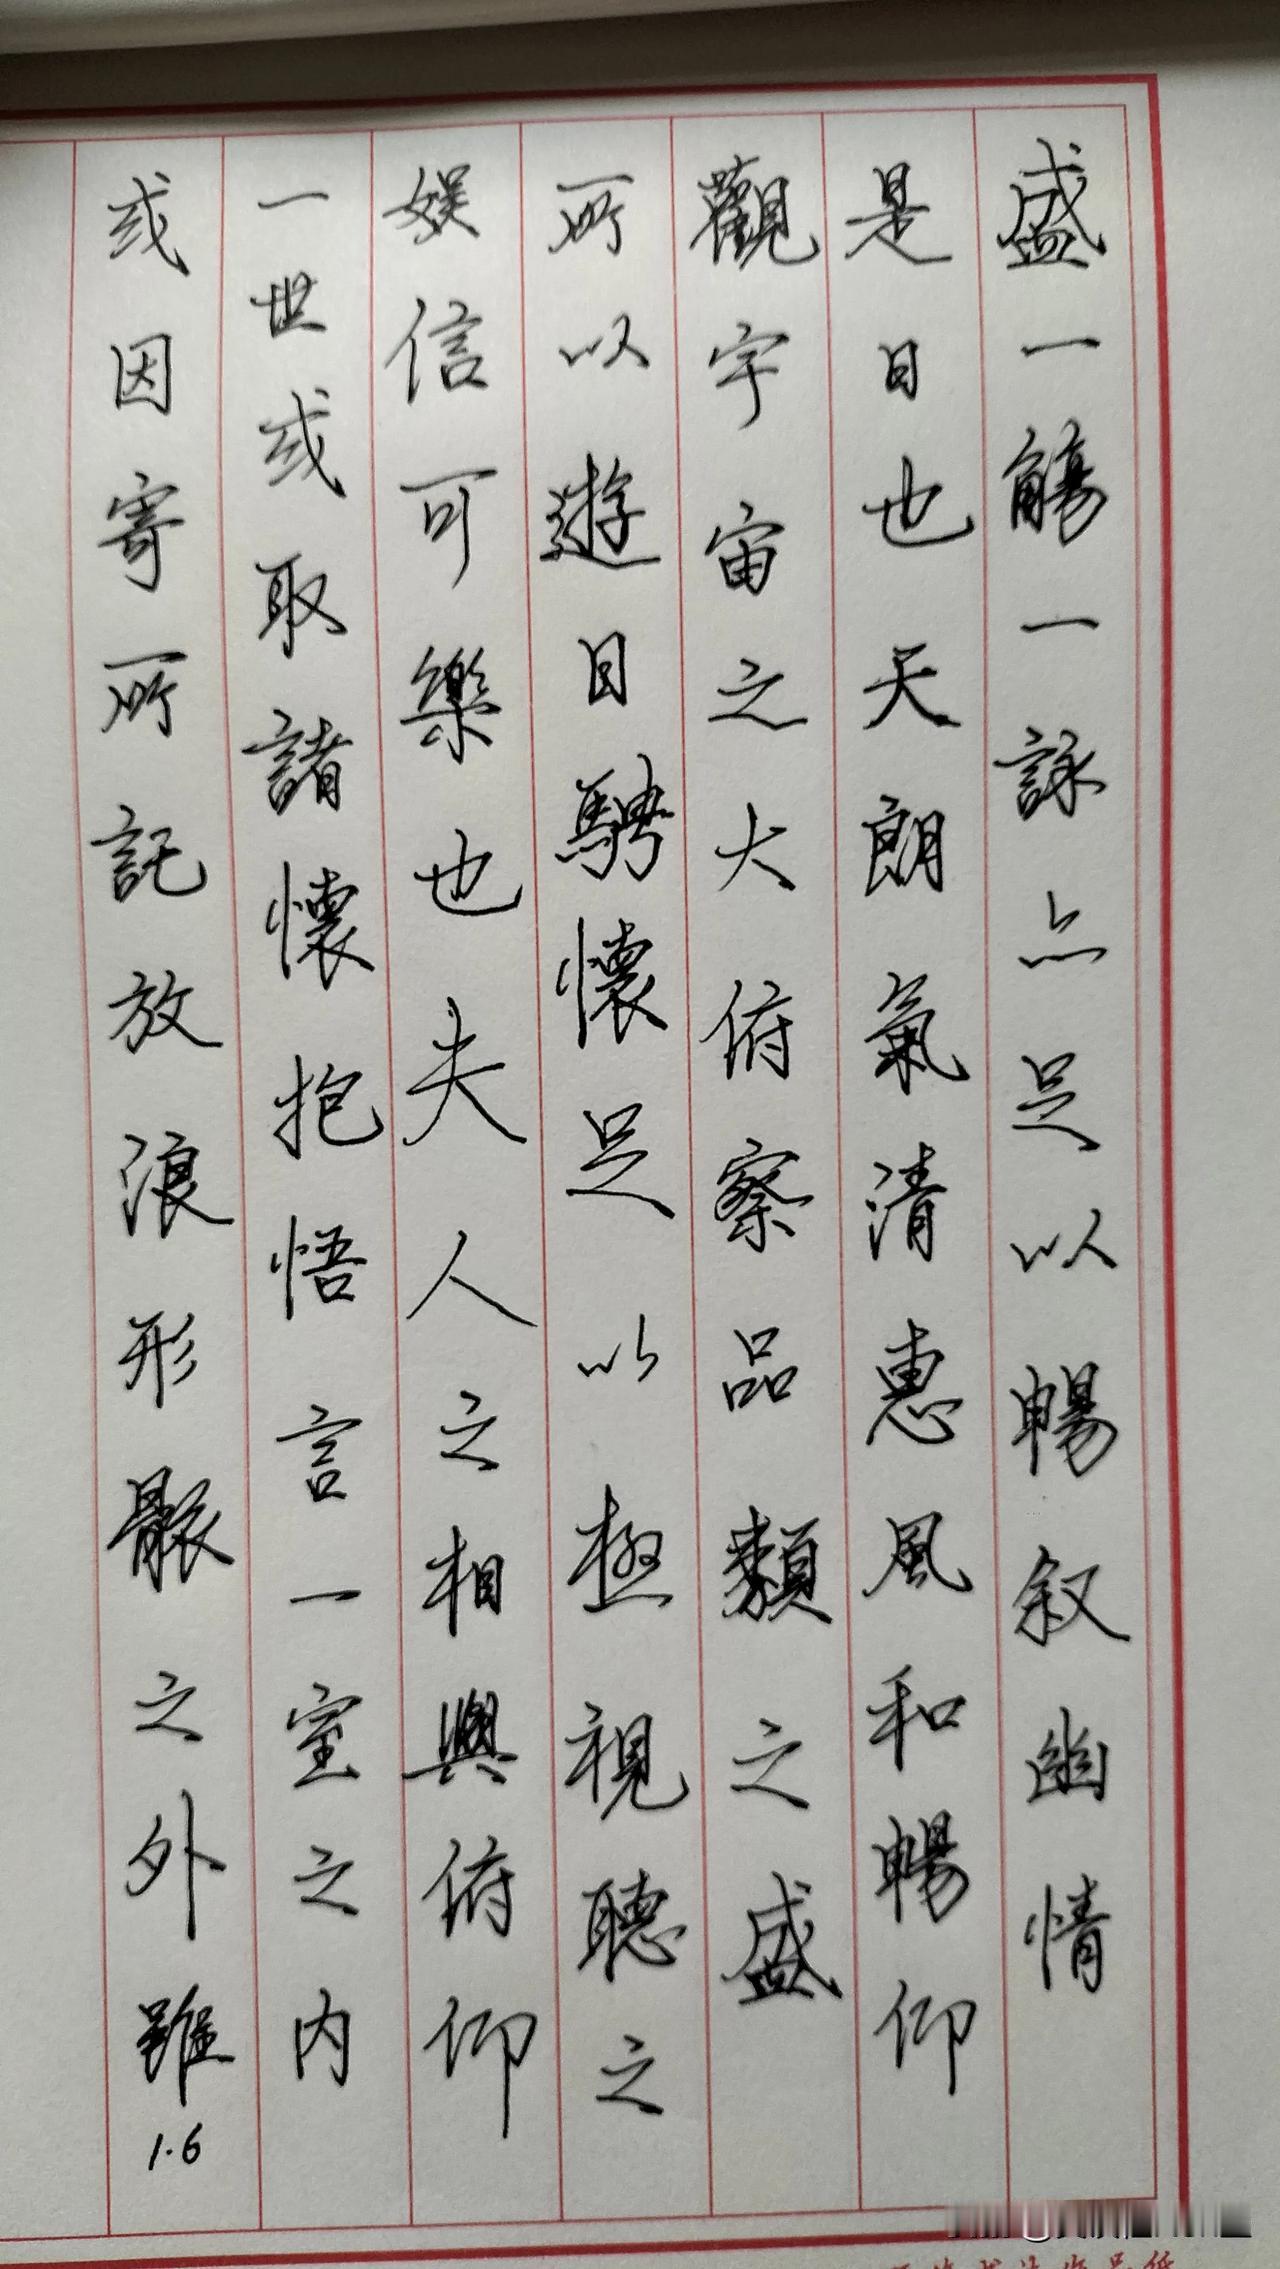 盛一觴一詠亦足以暢叙幽情
是日也天朗氣清惠風和暢仰
觀宇宙之大俯察品類之盛
所以遊目騁懷足以極視聽之
娱信可樂也夫人之相與俯仰
一世或取諸懷抱悟言一室之内
或因寄所託放浪形骸之外雖
1.6